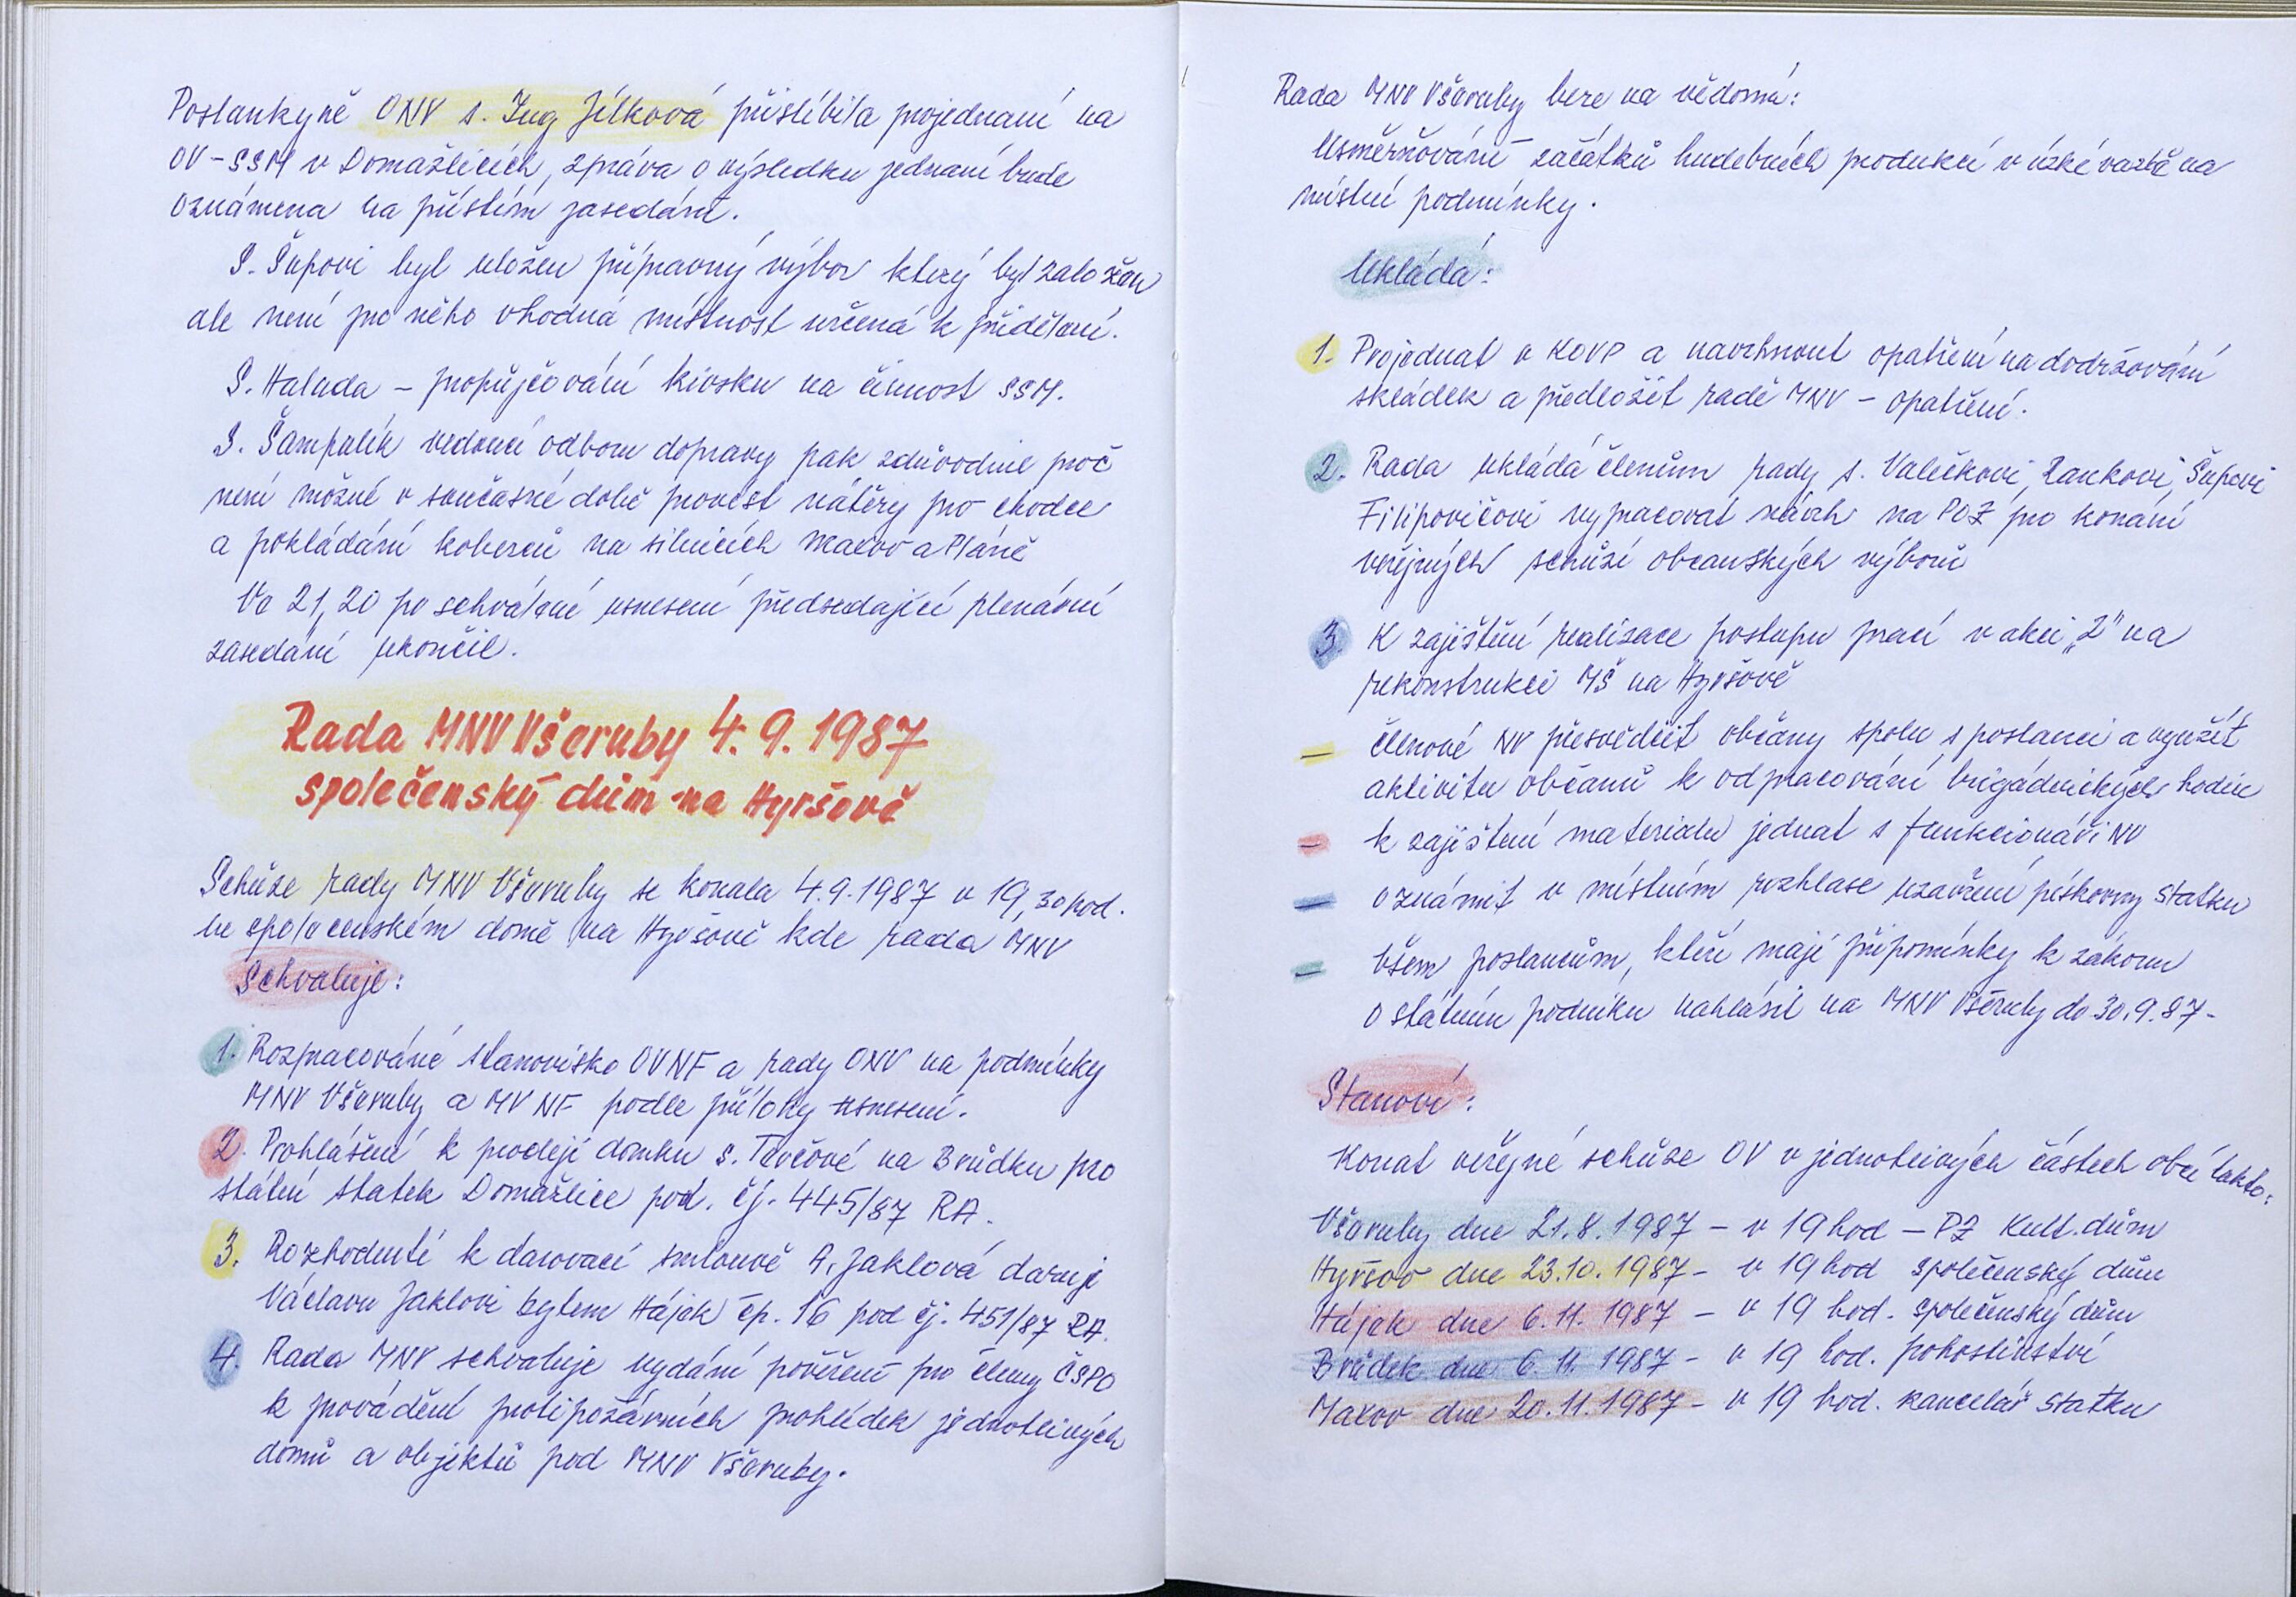 Poslankyně ONV s. Ing Jílková přislíbila projednaní na
OV-SSM v Domažlicích, zpráva o výsledku jednaní bude
oznámena na příštím zasedání.
S. Šupovi byl uložen přípravný výbor který byl založen
ale není pro něho vhodná místnost určená k přidělení.
S. Haluda - propůjčování kiosku na činnost SSM.
S. Šampalík vedoucí odboru dopravy pak zdůvodnil proč
není možné v současné době provést nátěry pro chodce
a pokládání koberců na silnicích Maxov a Pláně
Ve 21,20 po schválení usnesení předsedající plenární
zasedání ukončil.
Rada MNV Všeruby 4.9.1987
společenský dům na Hyršově
Schůze rady MNV Všeruby se konala 4.9.1987 v 19,30 hod.
ve společenském domě na Hyršově kde rada MNV
Schvaluje:
1. Rozpracováné stanovisko OVNF a rady ONV na podmínky
MNV Všeruby a MV NF podle přílohy usnesení.
2. Prohlášení k prodeji domku s. Terčové na Brůdku pro
státní statek Domažlice pod. čj. 445/87 RA.
3. Rozhodnutí k darovací smlouvě A. Jaklová daruje
Václavu Jaklovi bytem Hájek čp. 16 pod čj. 451/87 RA.
4. Rada MNV schvaluje vydání pověření pro členy ČSPO
k provádění protipožárních prohlídek jednotlivých
domů a objektů pod MNV Všeruby.
Rada MNV Všeruby bere na vědomí:
Usměrňování začátků hudebních produkcí v úzké vazbě na
místní podmínky.
Ukládá:
1. Projednat v KOVP a navrhnout opatření na dodržování
skládek a předložit radě MNV - opatření.
2. Rada ukládá členům rady s. Valečkovi, Rankovi, Šupovi
Filipovičovi vypracovat návrh na POZ pro konání
veřejných schůzí občanských výborů
3. K zajištění realizace postupu prací v akci „Z" na
rekonstrukci MŠ na Hyršově
- členové NV přesvědčit občany spolu s poslanci a využít
aktivitu občanů k odpracování brigádnických hodin
- k zajištení materialu jednat s funkcionáři NV
- oznámit v místním rozhlase uzavření pískovny statku
- všem poslancům, kteří mají připomínky k zákonu
o státním podniku nahlásit na MNV Všeruby do 30.9.87-
Stanoví:
Konat veřejné schůze OV v jednotlivých částech obcí takto:
Všeruby dne 21.8.1987 - v 19 hod - PZ Kult. dům
Hyršov dne 23.10.1987 - v 19 hod společenský dům
Hájek dne 6.11.1987 - v 19 hod. společenský dům
Brůdek dne 6.11.1987 - v 19 hod. pohostinství
Maxov dne 20.11.1987 - v 19 hod. kancelář statku